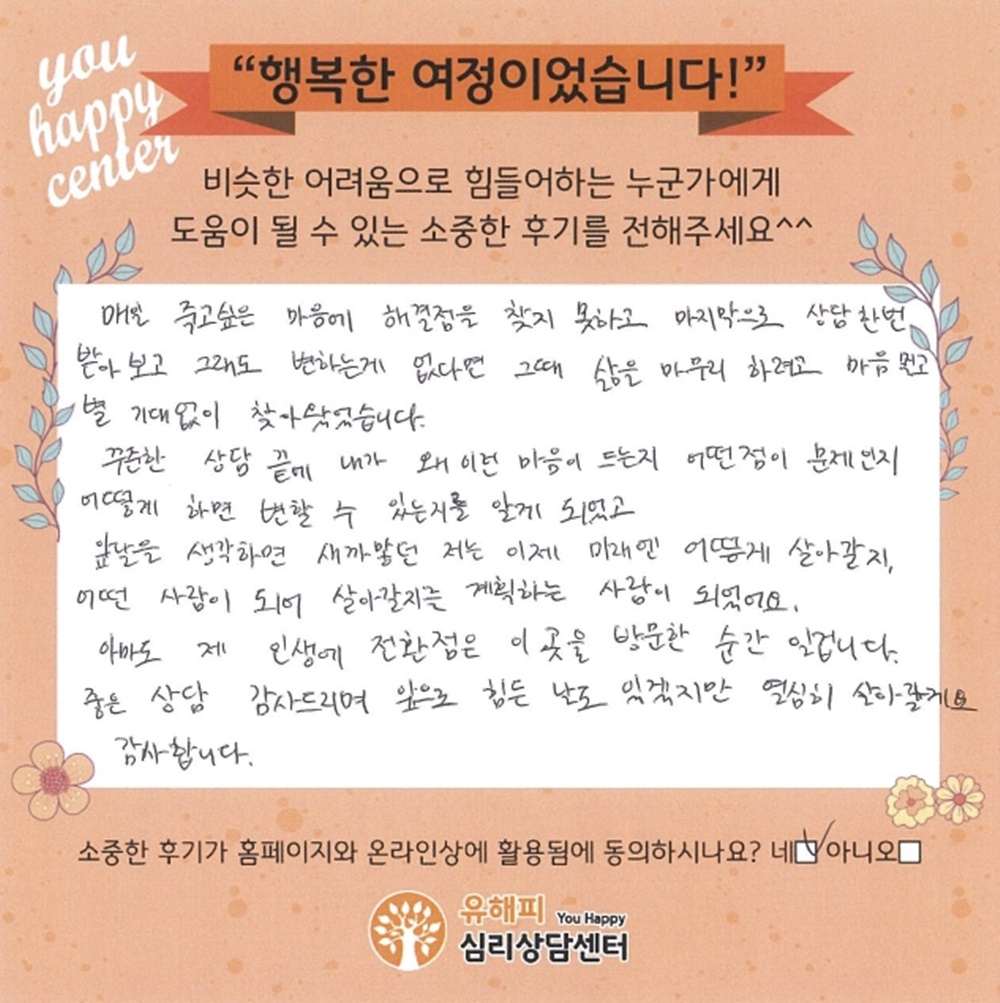 you
happy
center
“행복한 여정이었습니다!”
비슷한 어려움으로 힘들어하는 누군가에게
도움이 될 수 있는 소중한 후기를 전해주세요^^
매일 죽고싶은 마음에 해결점을 찾지 못하고 마지막으로 상담한번
받아보고 그래도 변하는게 없다면 그때 삶을 마무리 하려고 마음 먹고
별 기대없이 찾아왔었습니다.
꾸준한 상담 끝에 내가 왜 이런 마음이 드는지 어떤점이 문제인지
어떻게 하면 변할 수 있는지를 알게 되었고
앞날을 생각하면 새까맣던 저는 이제 미래엔 어떻게 살아갈지,
어떤 사람이 되어 살아갈지를 계획하는 사람이 되었어요.
아마도 제 인생에 전환점은 이 곳을 방문한 순간 일겁니다.
좋은 상담 감사드리며 앞으로 힘든 날도 있겠지만 열심히 살아갈게요
감사합니다.
소중한 후기가 홈페이지와 온라인상에 활용됨에 동의하시나요? 네 아니오
유해피 You Happy
심리상담센터